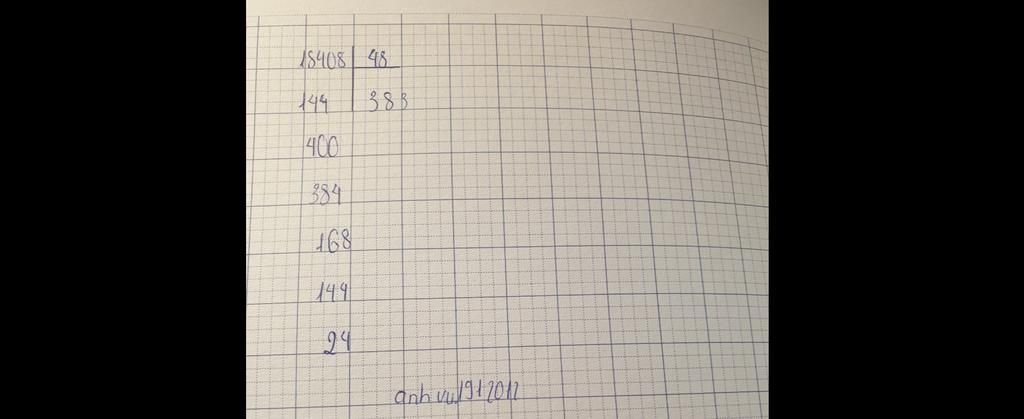 18408 48
144 383
400
384
168
144
24
anhvu1912012